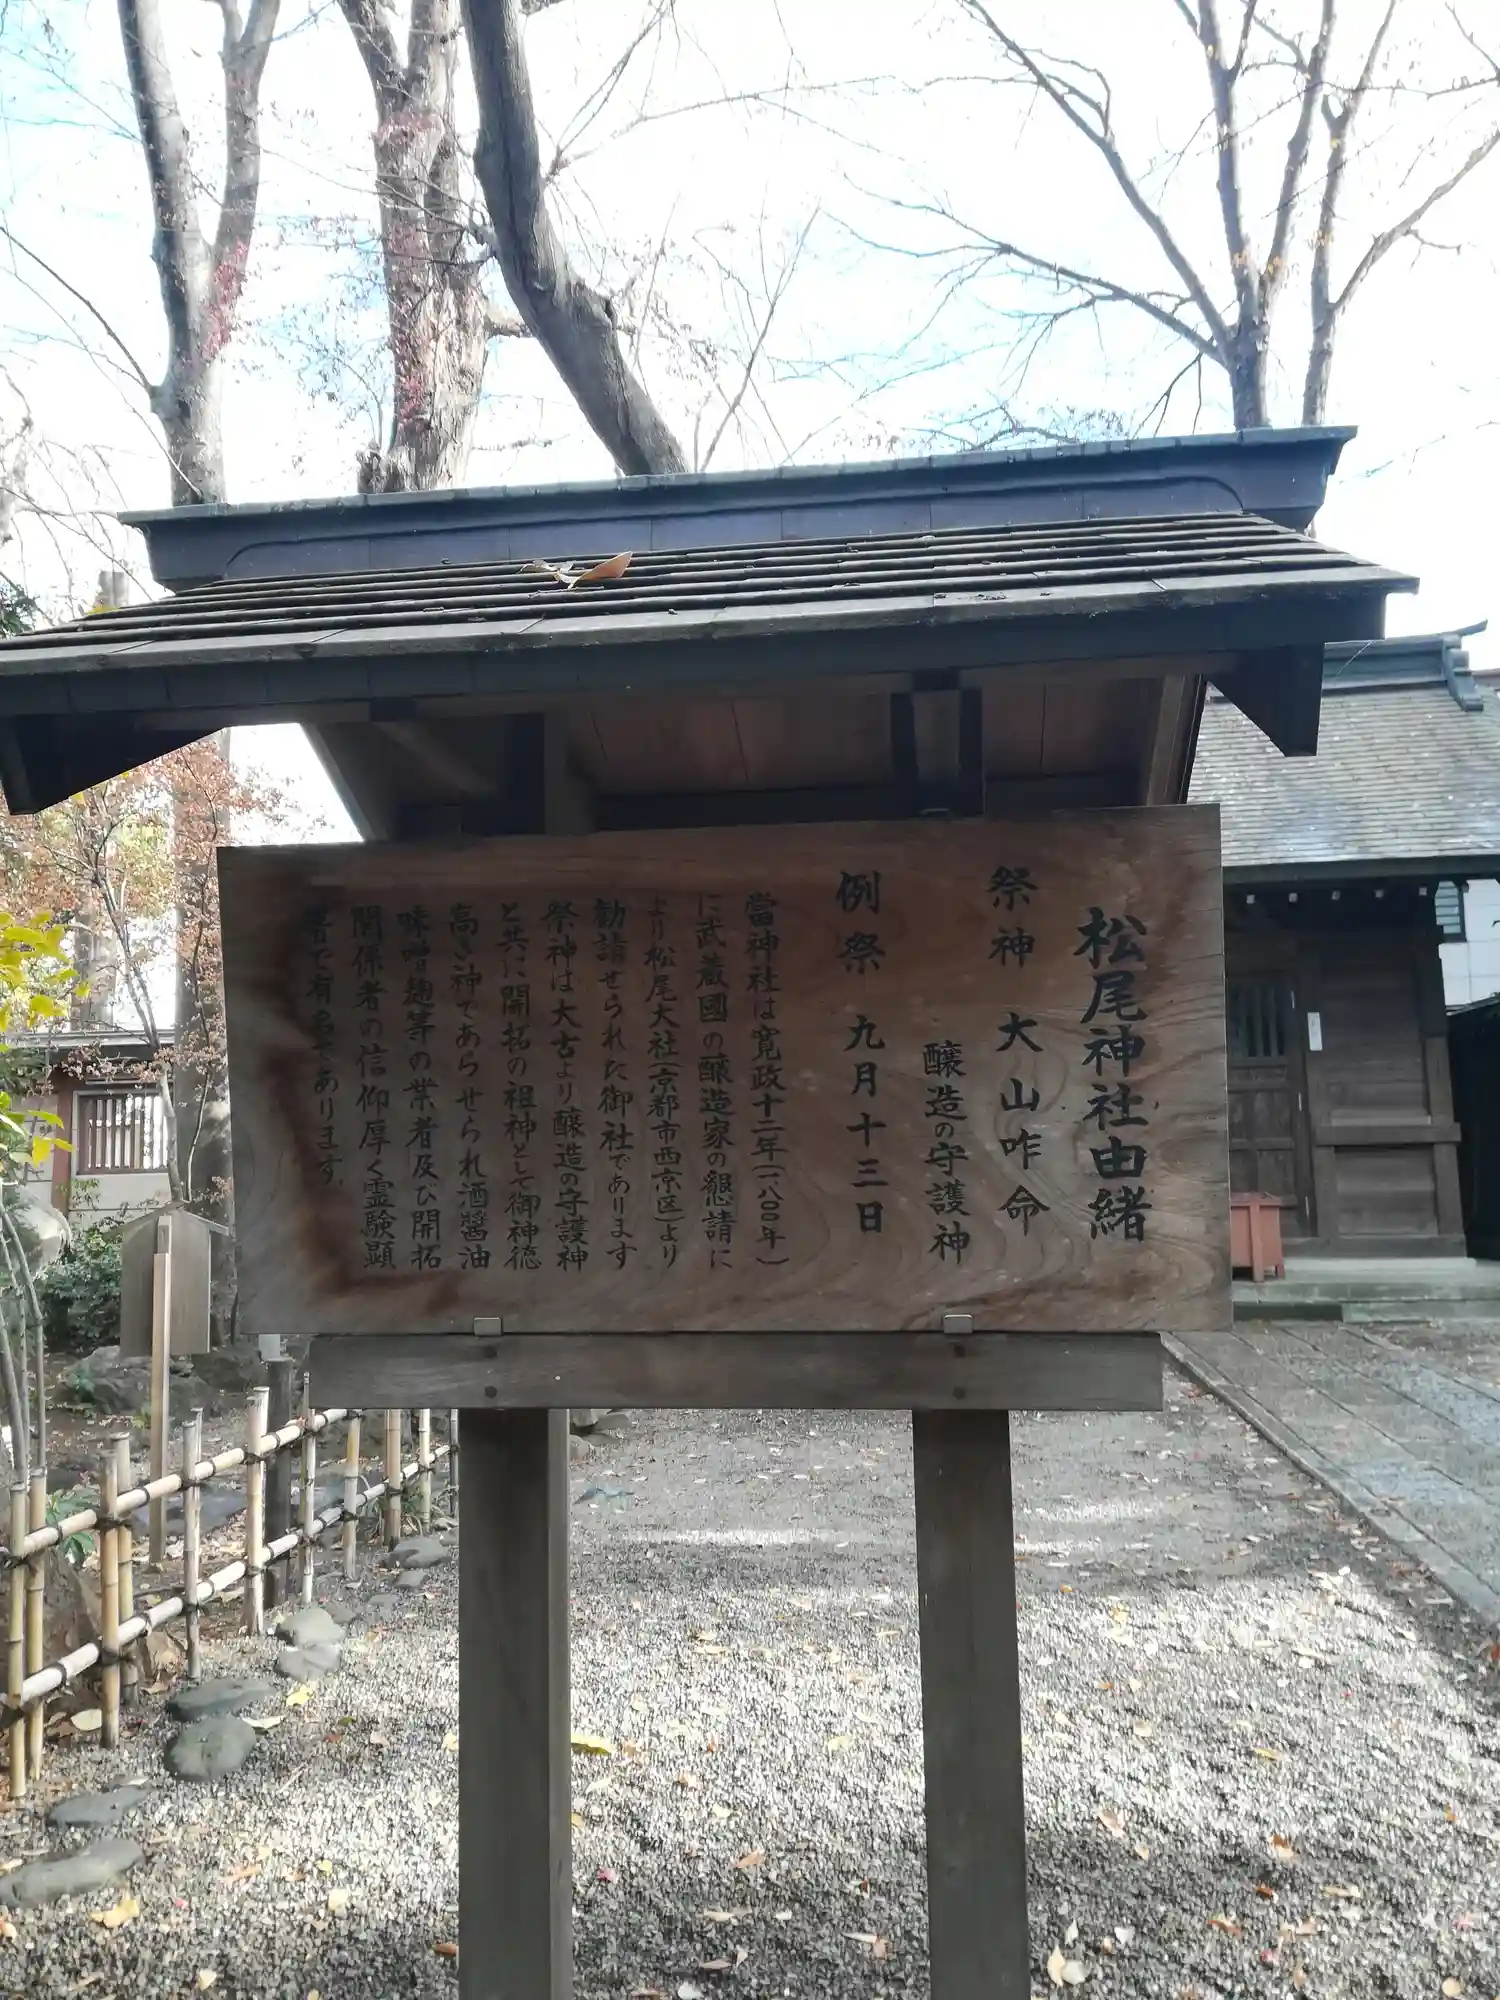 松尾神社由緒
祭神 大山咋命
醸造の守護神
例祭 九月十三日
當神社は寛政十二年(一八〇〇年)
に武蔵國の醸造家の懇請に
より松尾大社(京都市西京区)より
勧請せられた御社であります
祭神は大古より醸造の守護神
と共に開拓の祖神として御神徳
高き神であらせられ酒醬油
味噌麹等の業者及び開拓
関係者の信仰厚く霊験顕
著で有名であります。